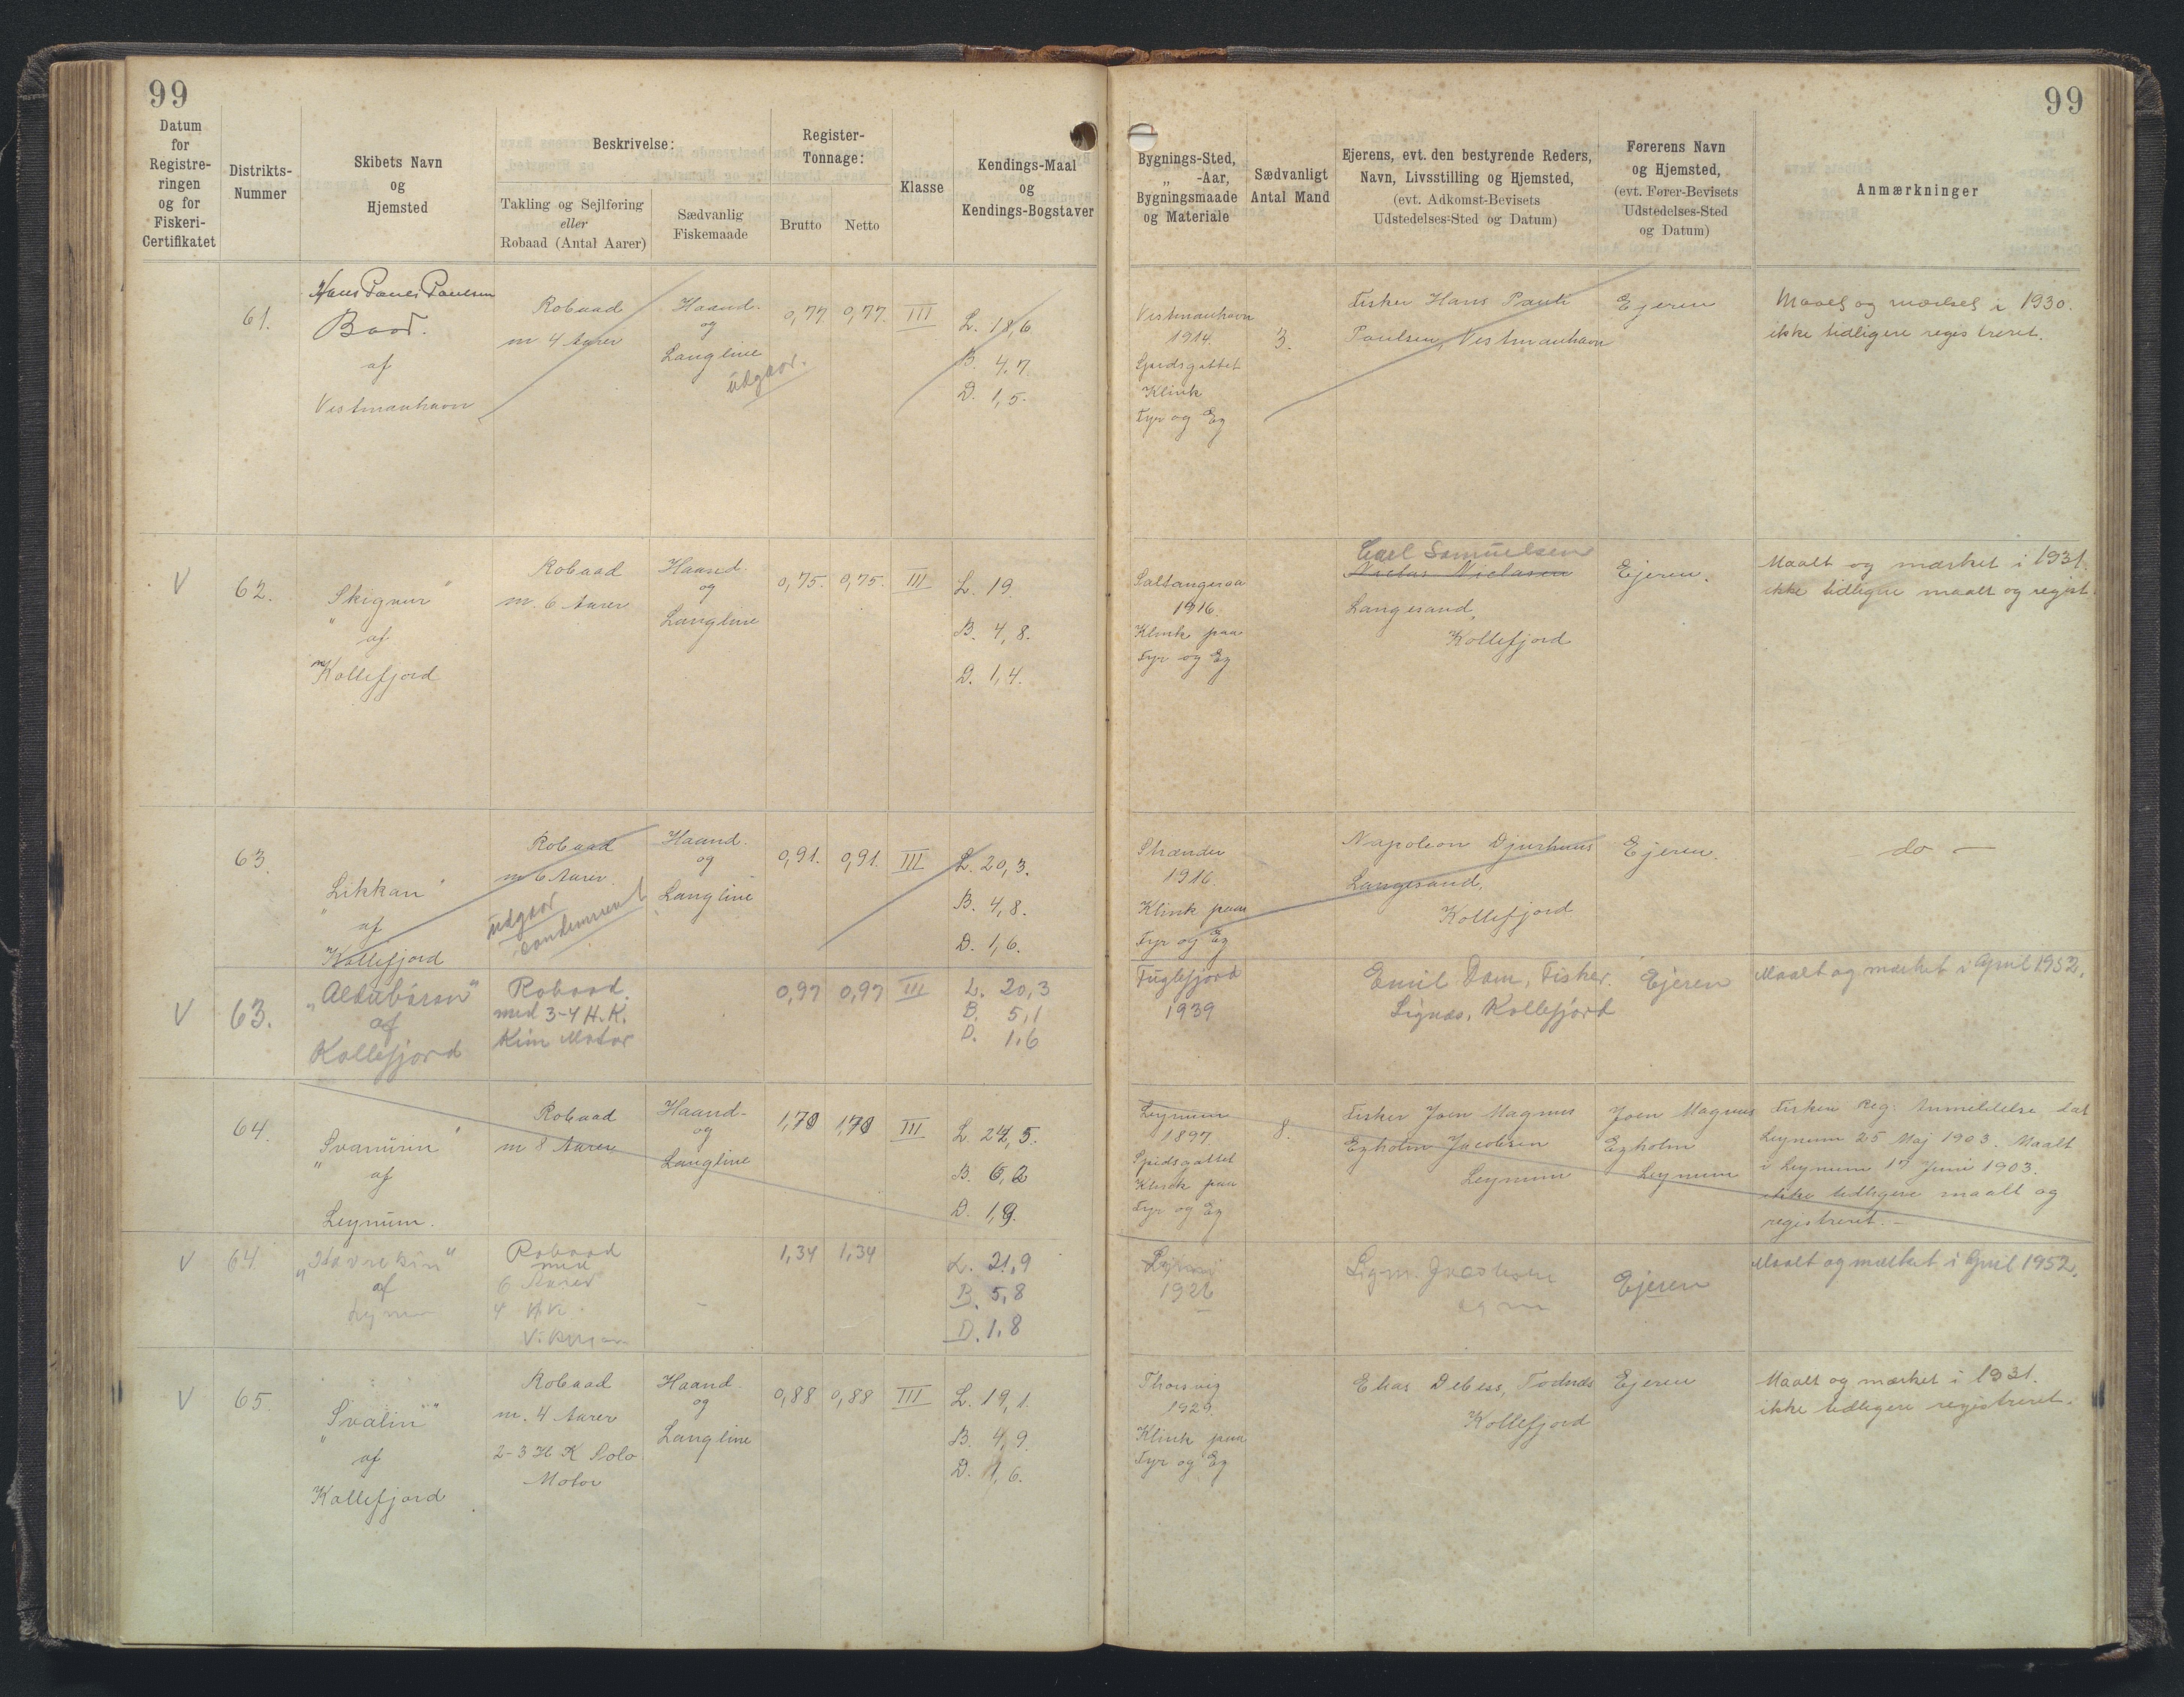 99
99
Datum
for
Registre-
ringen
og for
Fiskeri-
Certifikatet
Distrikts-
Nummer
Skibets Navn
og
Hjemsted
Beskrivelse:
Takling og Sejlføring
eller
Robaad (Antal Aarer)
Sædvanlig
Fiskemaade
Register-
Tonnage:
Brutto
Netto
Klasse
Kendings-Maal
og
Kendings-Bogstaver
Bygnings-Sted,
„ -Aar,
Bygningsmaade
og Materiale
Sædvanligt
Antal Mand
Ejerens, evt. den bestyrende Reders,
Navn, Livsstilling og Hjemsted,
(evt. Adkomst-Bevisets
Udstedelses-Sted og Datum)
Førerens Navn
og Hjemsted,
(evt. Fører-Bevisets
Udstedelses-Sted
og Datum)
Anmærkninger
61.
Hans Paules Paulsen
Baad.
af
Vestmanhavn
Robaad
m 4 Aarer
Haand-
og
Langline
udgaar.
0,77
0,77.
III
L. 18,6
B. 4,7.
D. 1,5.
Vestmanhavn
1914.
Spidsgattet
Klink
Fyr og Eg
3.
Fisker Hans Pauli
Paulsen, Vestmanhavn
Ejeren
Maalt og mærket i 1930.
ikke tidligere registreret.
V
62.
"Skignur"
af
Kollefjord
Robaad
m. 6 Aarer
Haand-
og
Langline
0,75.
0,75.
III
L. 19.
B. 4,8.
D. 1,4.
Saltangeraa
1916.
Klink paa
Fyr og Eg
Carl Samuelsen
Niclas Niclasen
Langesand,
Kollefjord
Ejeren.
Maalt og mærket i 1931.
ikke tidligere maalt og regist.
63.
"Likkan"
af
Kollefjord
Robaad
m 6 Aarer
udgaar
condemneret
Haand-
og
Langline
0,91.
0,91.
III
L. 20,3.
B. 4,8.
D. 1,6.
Strænder
1916.
Klink paa
Fyr og Eg
Napoleon Djurhuus
Langesand,
Kollefjord
Ejeren.
do —
V
63.
„Aldubáran"
af
Kollefjord
Robaad.
med 3-4 H.K.
Kim Motor
0,97
0,97
III
L. 20,3
B. 5,1
D. 1,6
Fuglefjord
1939
Emil Dam, Fisker.
Signas, Kollefjord
Ejeren
Maalt og mærket i April 1952.
64.
"Svanurin"
af
Leynum.
Robaad
m 8 Aarer
Haand-
og
Langline
1,70
1,70
III
L. 24,5.
B. 6,2
D. 1,9.
Leynum
1897.
Spidsgattet
Klink paa
Fyr og Eg
8.
Fisker Joen Magnus
Egholm Jacobsen
Leynum
Joen Magnus
Egholm
Leynum
Fiskeri Reg. Anmeldelse dat
Leynum 25 Maj 1903. Maalt
i Leynum 17 Juni 1903.
ikke tidligere maalt og
registreret.-
V
64.
af
Robaad
med
6 Aarer
4 HK
1,34
1,34
L. 21,9
B. 5,8
D. 1,8
1926
Sigm. Jacobsen
Ejeren
Maalt og mærket i April 1952.
V
65.
"Svalin"
af
Kollefjord
Robaad
m. 4 Aarer
2-3 H K Solo
Motor
Haand-
og
Langline
0,88
0,88
III
L. 19,1.
B. 4,9.
D. 1,6.
Thorsvig
1929.
Klink paa
Fyr og Eg
Elias Debess, Todnæs
Kollefjord
Ejeren
Maalt og mærket i 1931.
ikke tidligere registreret.